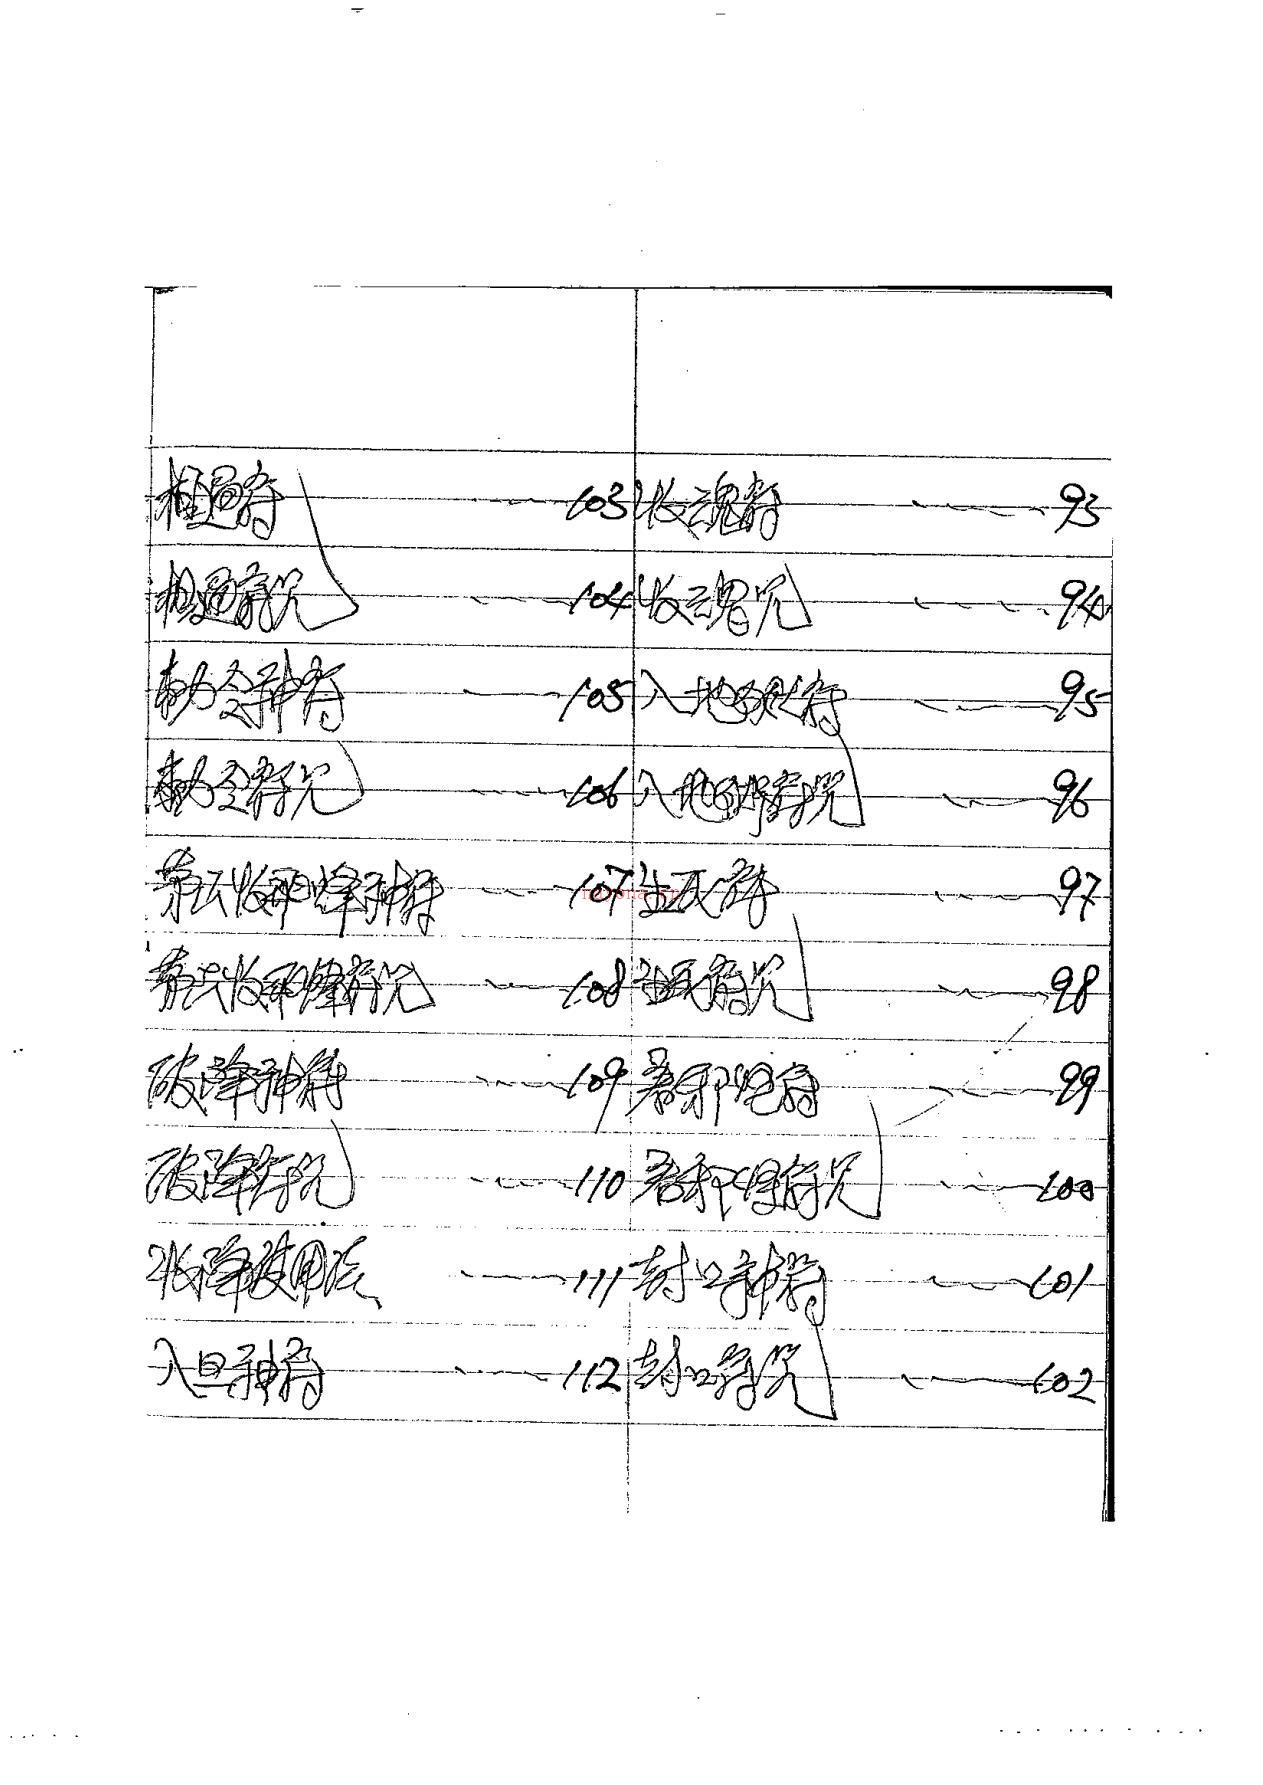 收魂符 93
收魂咒 94
入地獄符 95
入地獄符咒 96
符 97
符咒 98
邪 符 99
邪 符咒 100
封口神符 101
封口符咒 102
相遇符 103
相遇符咒 104
勅令神符 105
勅令符咒 106
收邪 神符 107
收邪 符咒 108
破降神符 109
破降符咒 110
收降使用法 111
入 神符 112